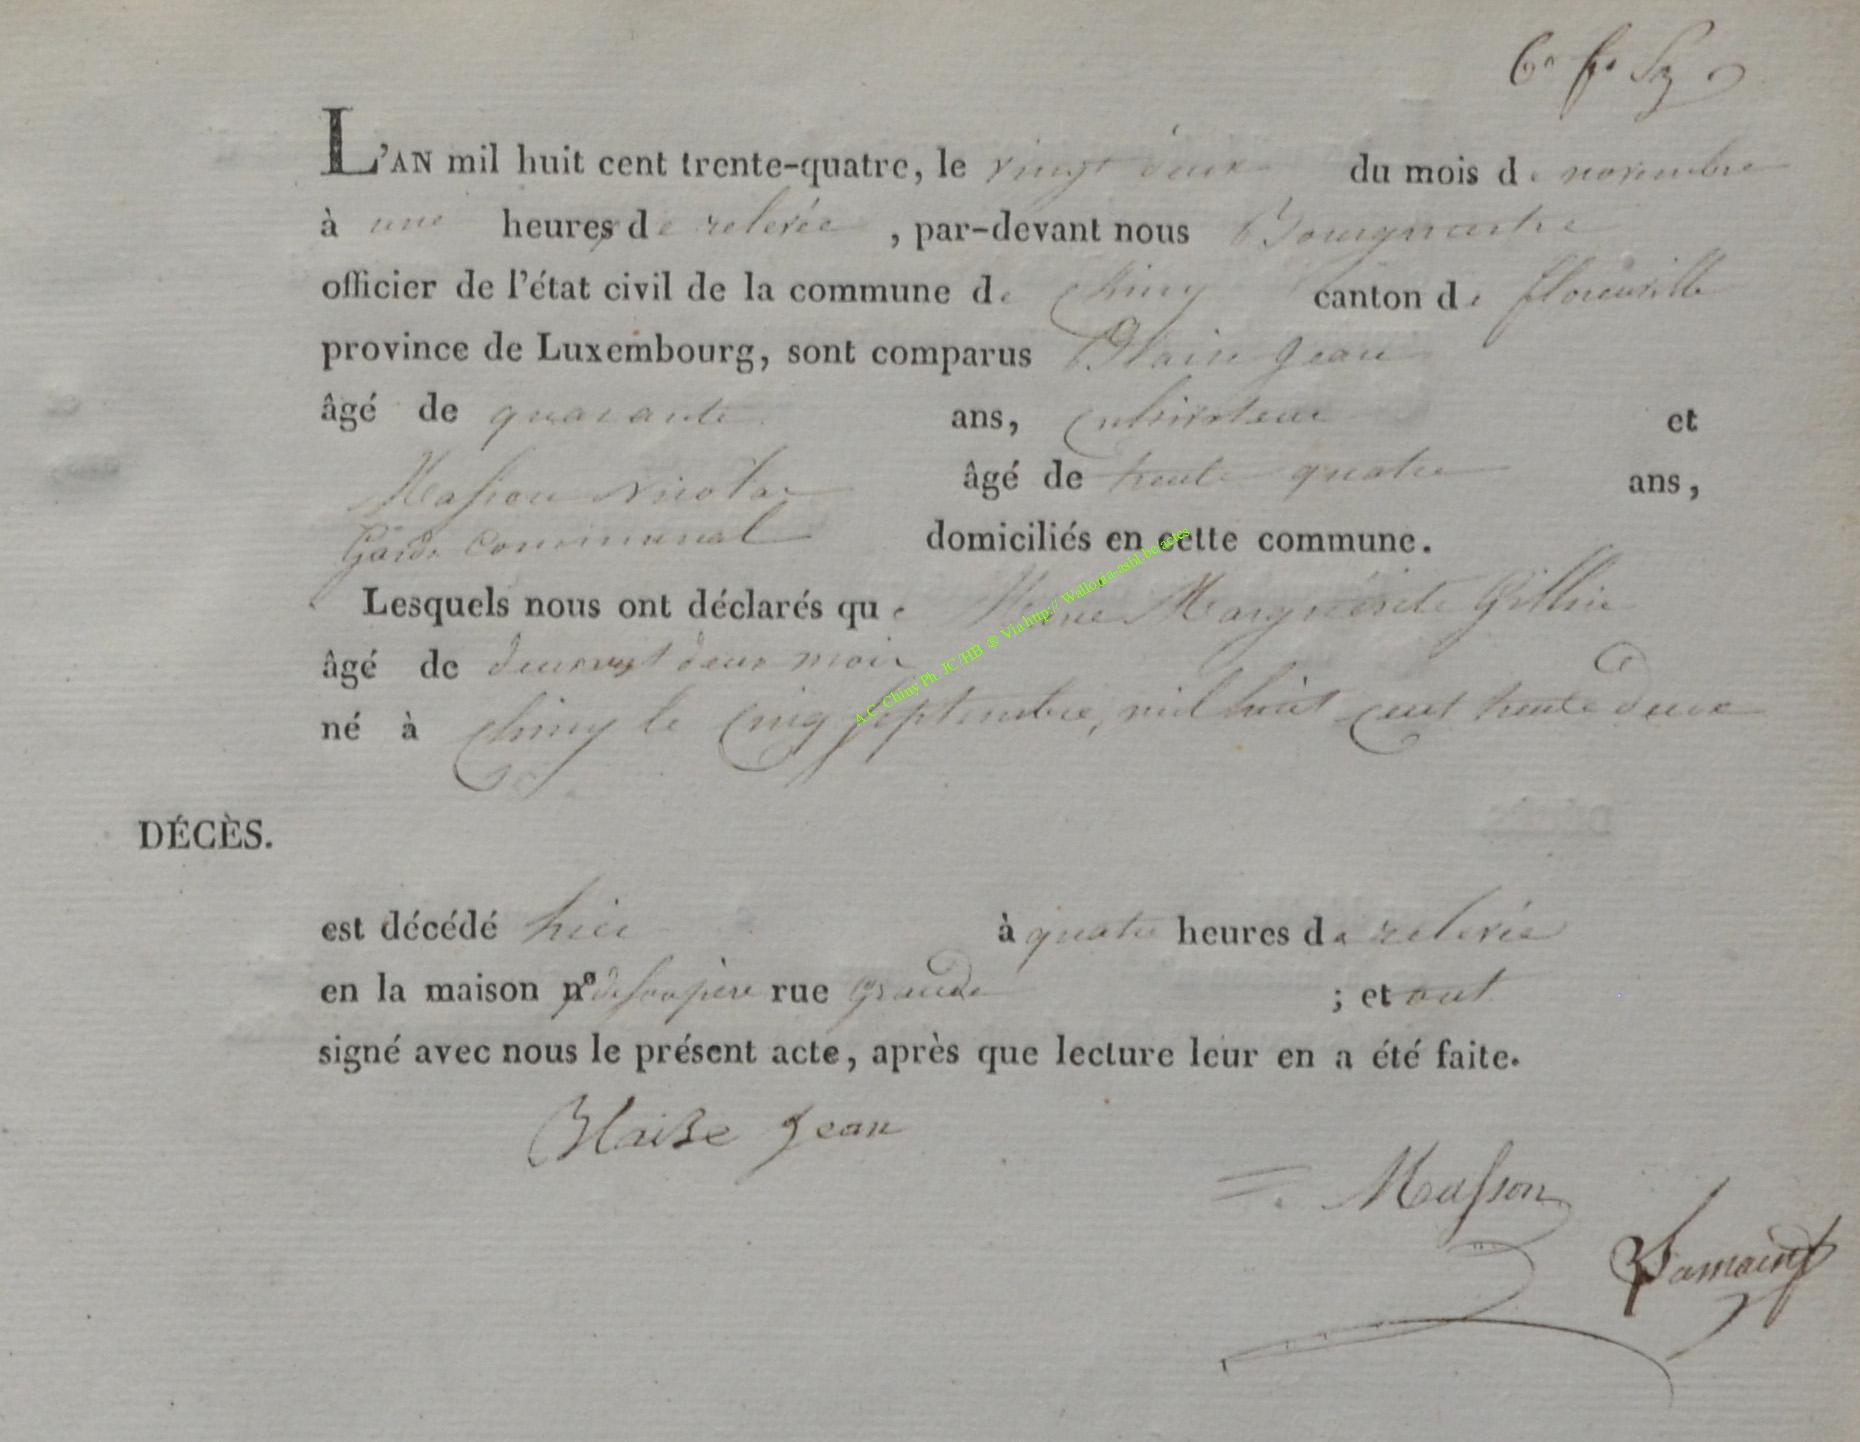 L'AN mil huit cent trente-quatre, le vingt deux du mois de novembre
à une heures de relevée , par-devant nous Bourgmestre
officier de l'état civil de la commune de Chiny canton de florenville
province de Luxembourg, sont comparus Blaise Jean
âgé de quarante ans, Cultivateur et
Masson Nicolas âgé de trente quatre ans,
Garde Communal domiciliés en cette commune.
Lesquels nous ont déclarés que Marguerite Gillin
âgé de deux deux mois
né à Chiny le Cinq septembre, mil huit Cent trente Deux
DÉCÈS.
est décédé hier à quatre heures de relevée
en la maison n° de son père rue Grande ; et ont
signé avec nous le présent acte, après que lecture leur en a été faite.
Blaise Jean
Masson
A.C. Chiny Ph. JC/HB © Via http:// Wallonia-asbl-be/actes